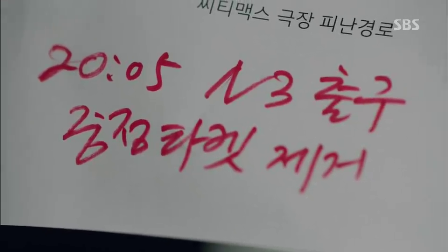 씨티맥스 극장 피난경로
SBS
20:05 N3 출구
중점타겟 제거